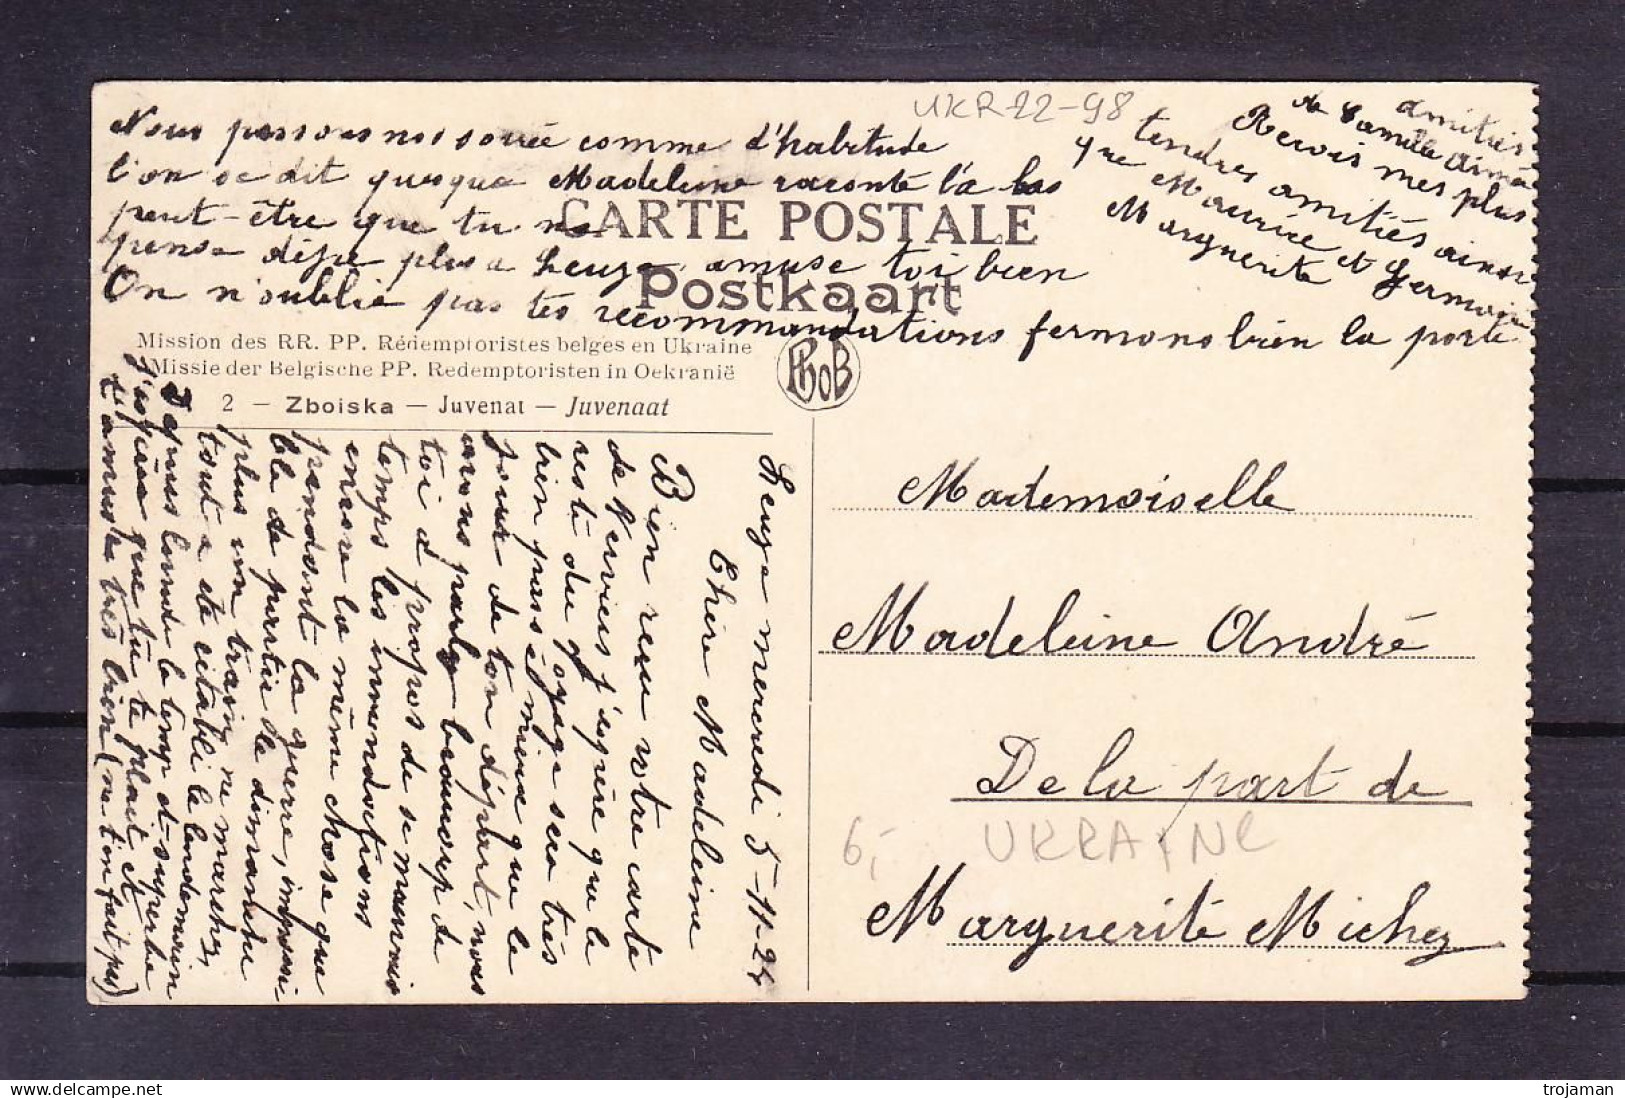 UKR22-98
Nous passons nos soirée comme d'habitude
l'on se dit quesque Madeleine raconte l'a bas
peut-être que tu ne
pense déjà plus a Leuze, amuse toi bien
On n'oublie pas tes recommandations fermons bien la porte
amitiés
de Camille Aimé
Recois mes plus
tendres amitiés ainsi
que Maurice et Germain
Marguerite
CARTE POSTALE
Postkaart
Mission des RR. PP. Rédemptoristes belges en Ukraine
Missie der Belgische PP. Redemptoristen in Oekranië
2 — Zboiska — Juvenat — Juvenaat
PhoB
Leuze mercredi 5-11-24
Chère Madeleine
Bien reçu votre carte
de Verviers j'espère que le
reste du voyage sera très
bien passé, mieux que le
jour de ton départ, nous
avons parler beaucoup de
toi à propos de se mauvais
temps les innondations
encore la même chose que
pendant la guerre, impossi-
ble de partir le dimanche
plus un train ne marchez
tout a été rétabli le lendemain
Depuis lundi le temp est superbe
j'espère que tu te plait et
t'amuse très bien (ne t'en fait pas)
Mademoiselle
Madeleine André
De la part de
6,- UKRAINE
Marguerite Michez
trojaman